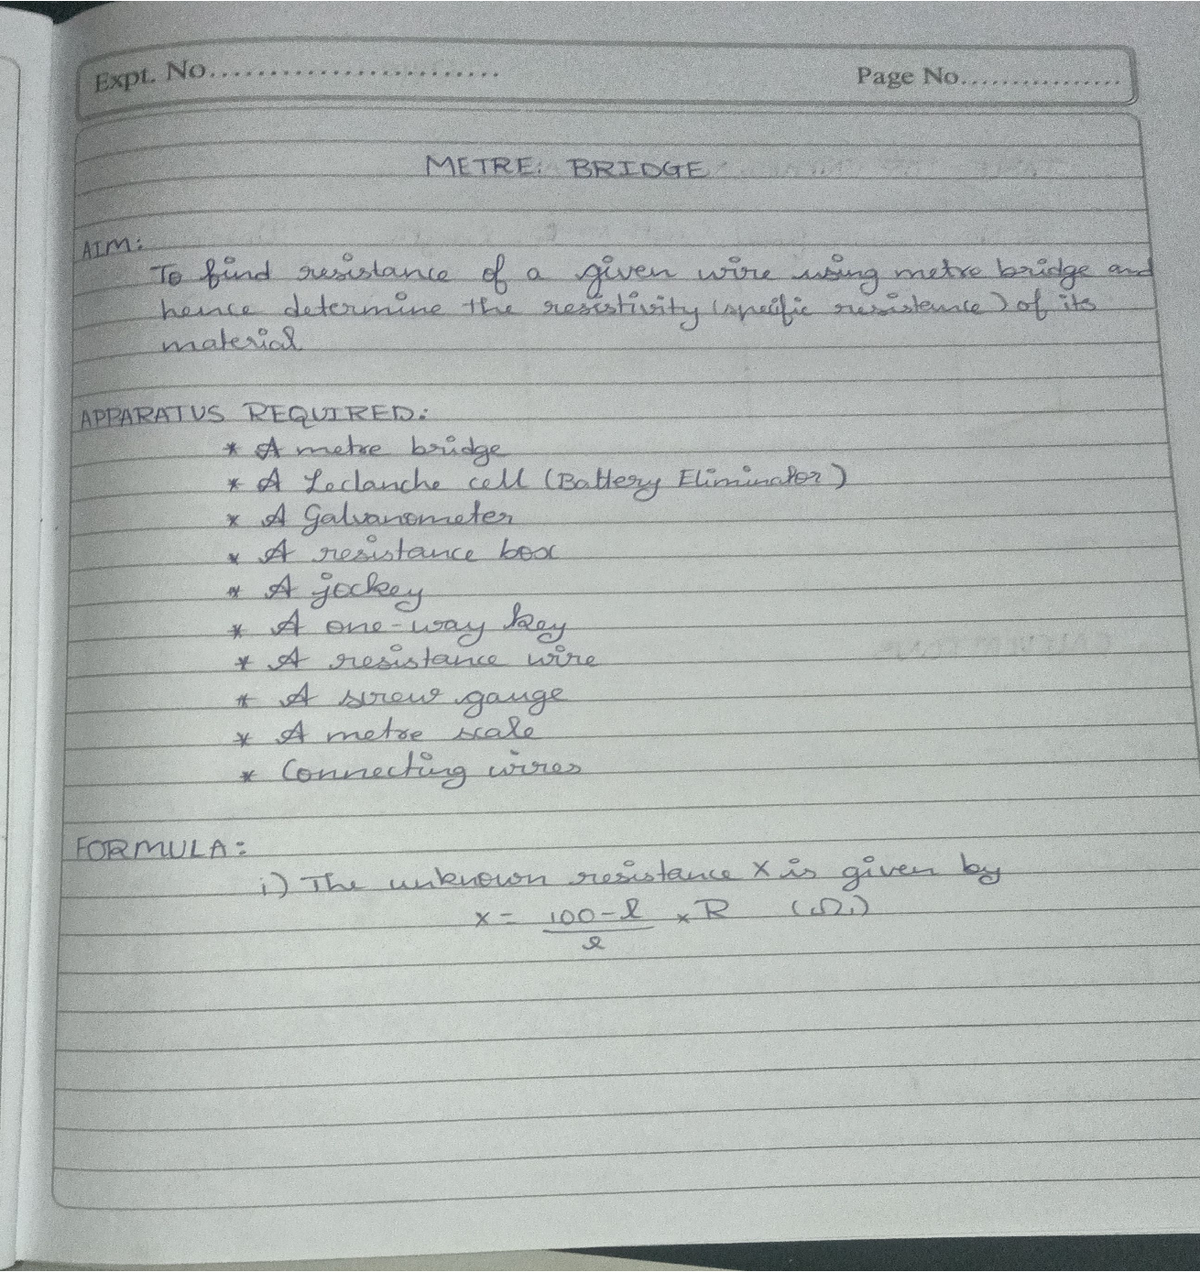 Expt. No........................
Page No................
METRE BRIDGE
AIM:
To find resistance of a given wire using metre bridge and
hence determine the resistivity (specific resistance) of its
material
APPARATUS REQUIRED:
* A metre bridge
* A Leclanche cell (Battery Eliminator)
* A Galvanometer
* A resistance box
* A jockey
* A one-way key
* A resistance wire
* A screw gauge
* A metre scale
* Connecting wires
FORMULA:
i) The unknown resistance X is given by
X = 100-l / l × R (Ω)